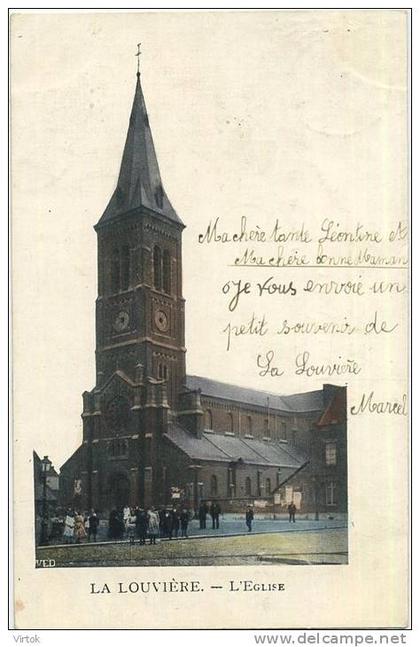 Ma chère tante Léontine et
Ma chère bonne Maman
Je vous envoie un
petit souvenir de
La Louvière
Marcel
VED
LA LOUVIÈRE. — L'EGLISE
© Virtok
http://www.delcampe.net